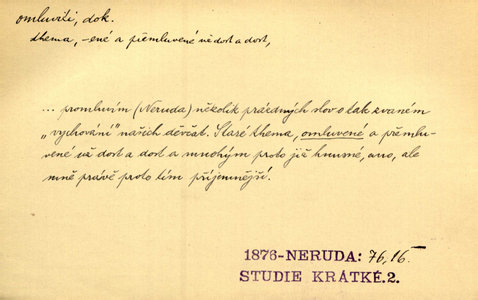 omluviti, dok.
thema, -ené a přemluvené už dost a dost,
... promluvím (Neruda) několik prázdných slov o tak zvaném
„vychování“ našich děvčat. Staré thema, omluvené a přemlu-
vené už dost a dost a mnohým proto již hnusné, ano, ale
mně právě proto tím příjemnější.
1876-NERUDA: 76,16
STUDIE KRÁTKÉ.2.